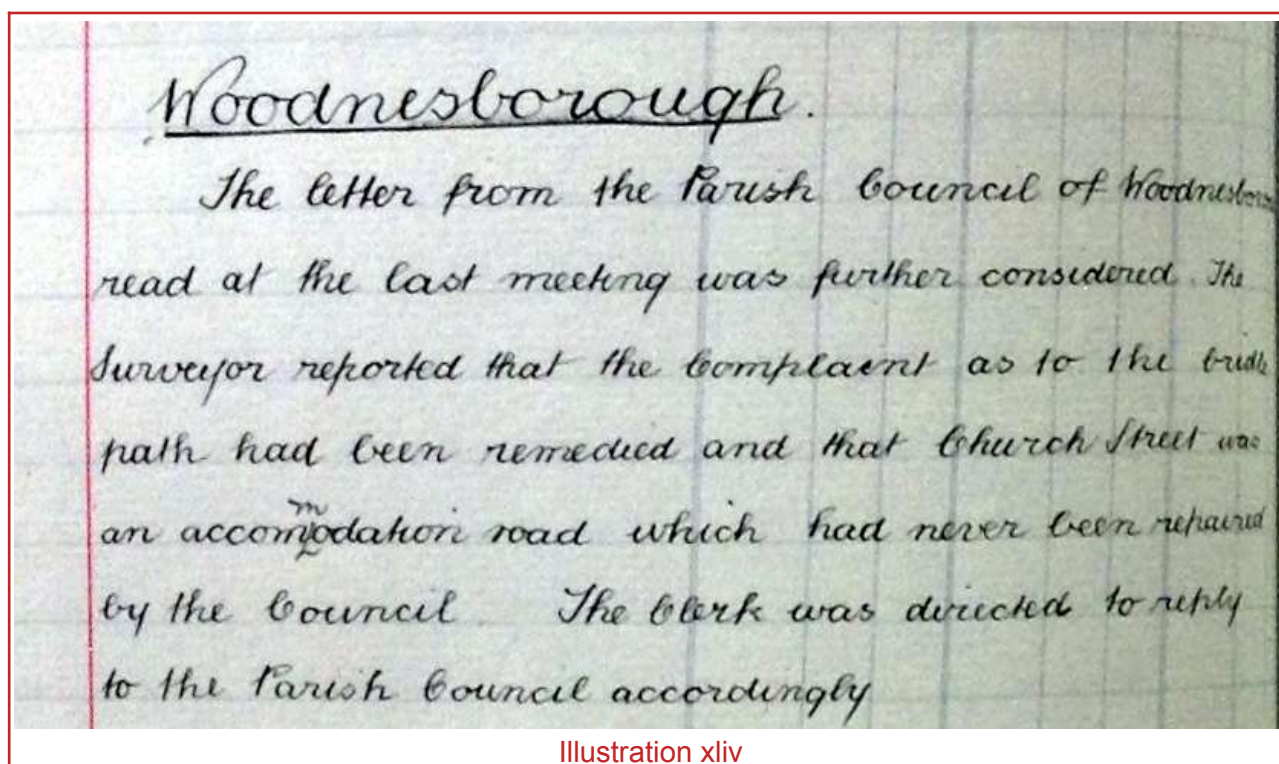 Woodnesborough.
The letter from the Parish Council of Woodnesboro
read at the last meeting was further considered. The
Surveyor reported that the Complaint as to the bridle
path had been remedied and that Church Street was
an accommodation road which had never been repaired
by the Council. The Clerk was directed to reply
to the Parish Council accordingly
Illustration xliv